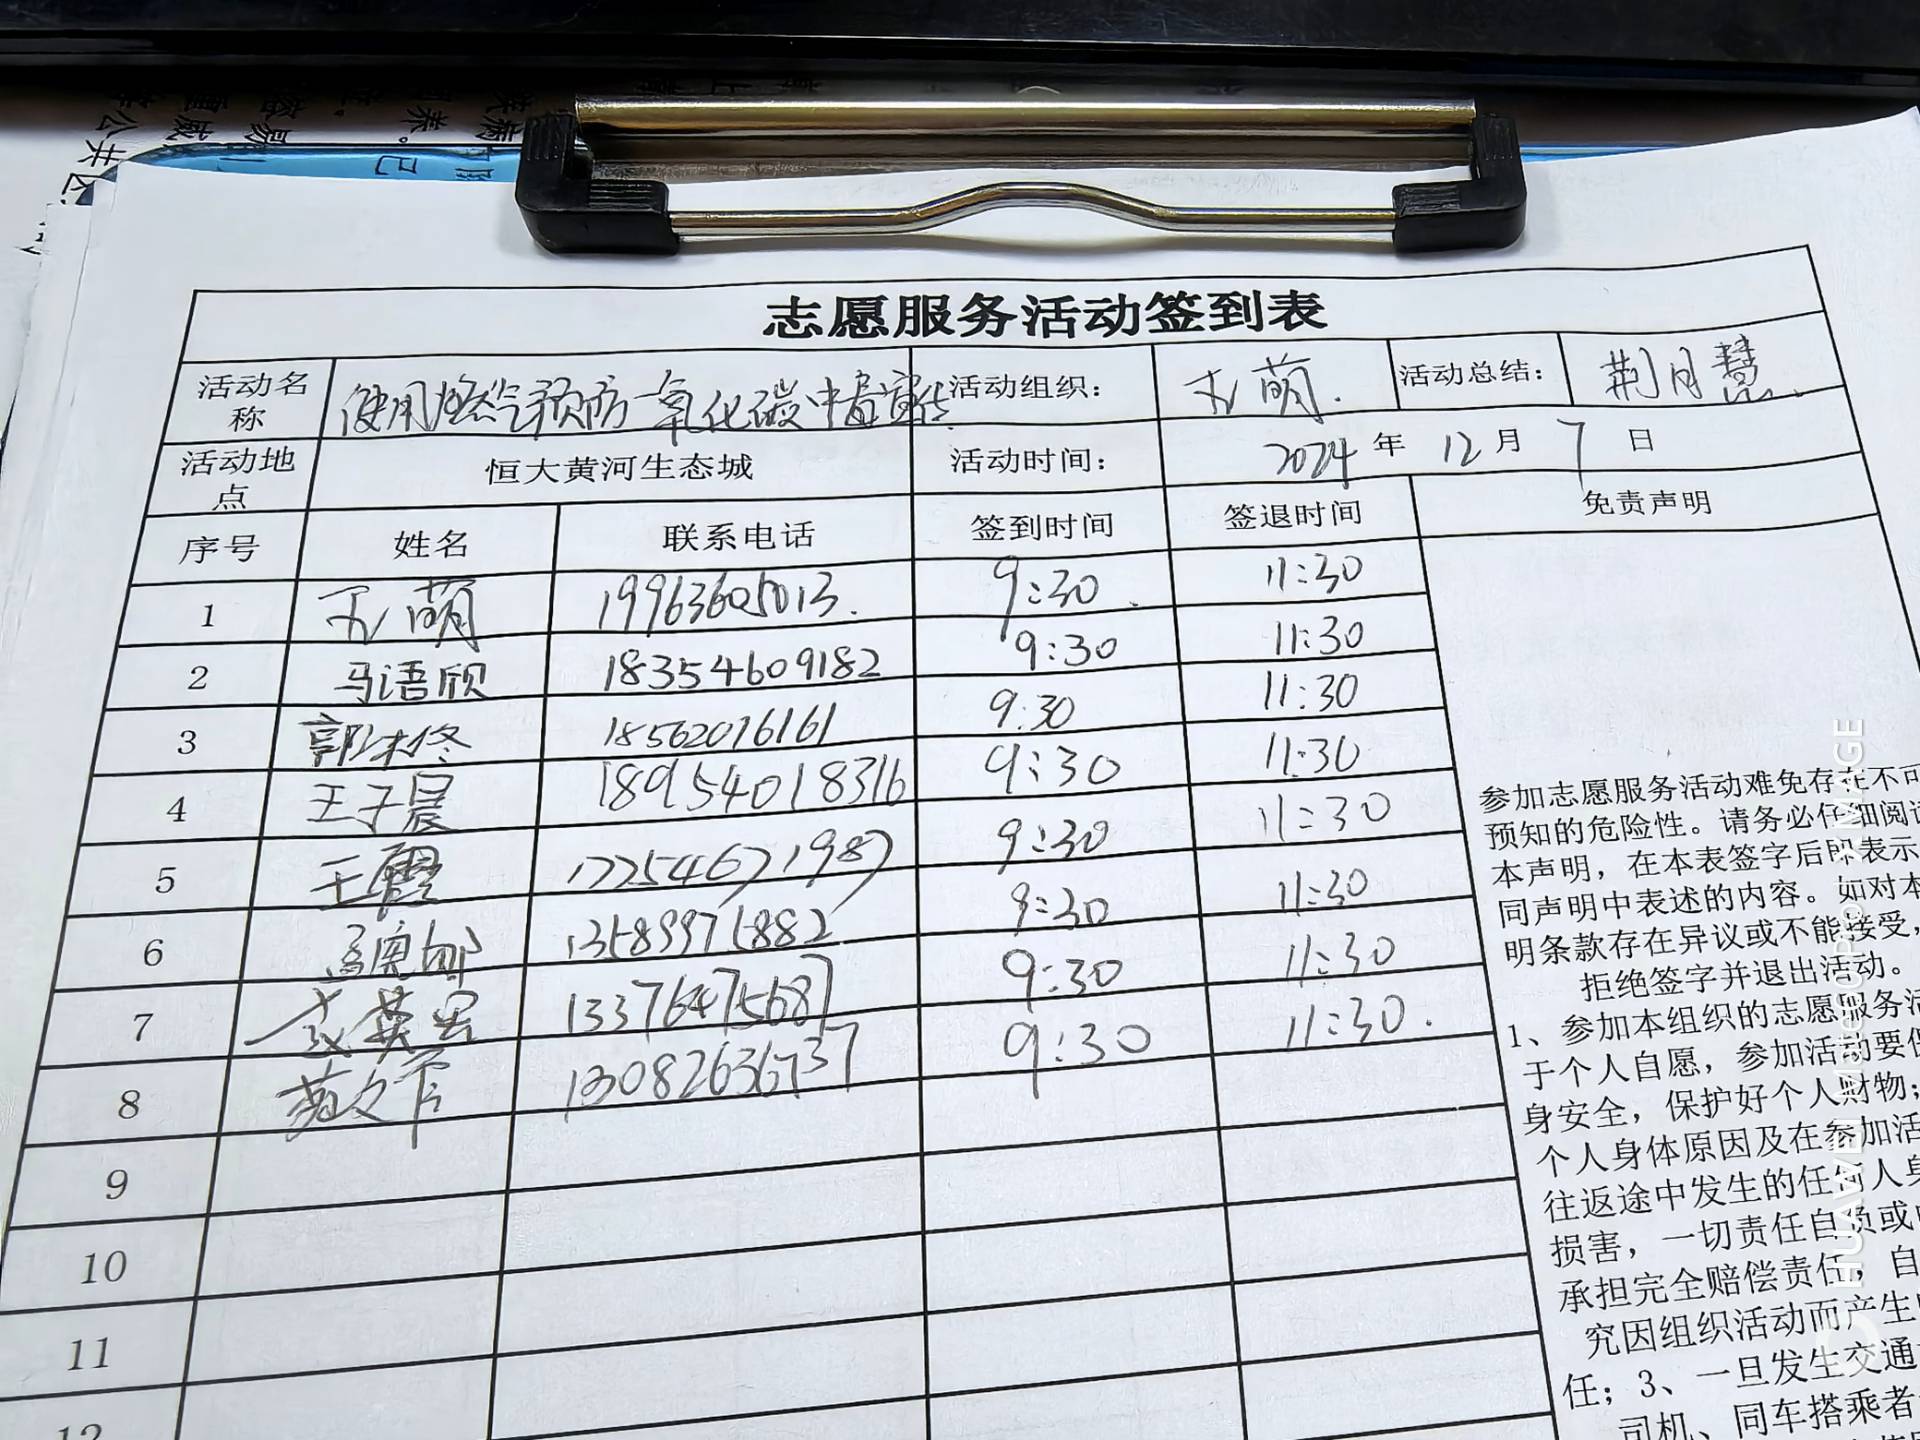 志愿服务活动签到表
活动名称 使用燃气预防一氧化碳中毒宣传 活动组织: 王萌. 活动总结: 荆月慧
活动地点 恒大黄河生态城 活动时间: 2024 年 12 月 7 日
序号 姓名 联系电话 签到时间 签退时间 免责声明
1 王萌 19963605013. 9:30 11:30
2 马语欣 18354609182 9:30 11:30
3 郭林修 18562016161 9:30 11:30
4 王子晨 18954018316 9:30 11:30
5 王霞 17254671987 9:30 11:30
6 13589975882 9:30 11:30
7 13376475687 9:30 11:30
8 13082636737 9:30 11:30.
9
10
11
12
参加志愿服务活动难免存在不可
预知的危险性。请务必仔细阅读
本声明，在本表签字后即表示
同声明中表述的内容。如对本
明条款存在异议或不能接受，
拒绝签字并退出活动。
1、参加本组织的志愿服务活
于个人自愿，参加活动要保
身安全，保护好个人财物；
个人身体原因及在参加活
往返途中发生的任何人身
损害，一切责任自负或由
承担完全赔偿责任，自
究因组织活动而产生
任；3、一旦发生交通
司机、同车搭乘者
HUAWEI Mate60Pro XMAGE